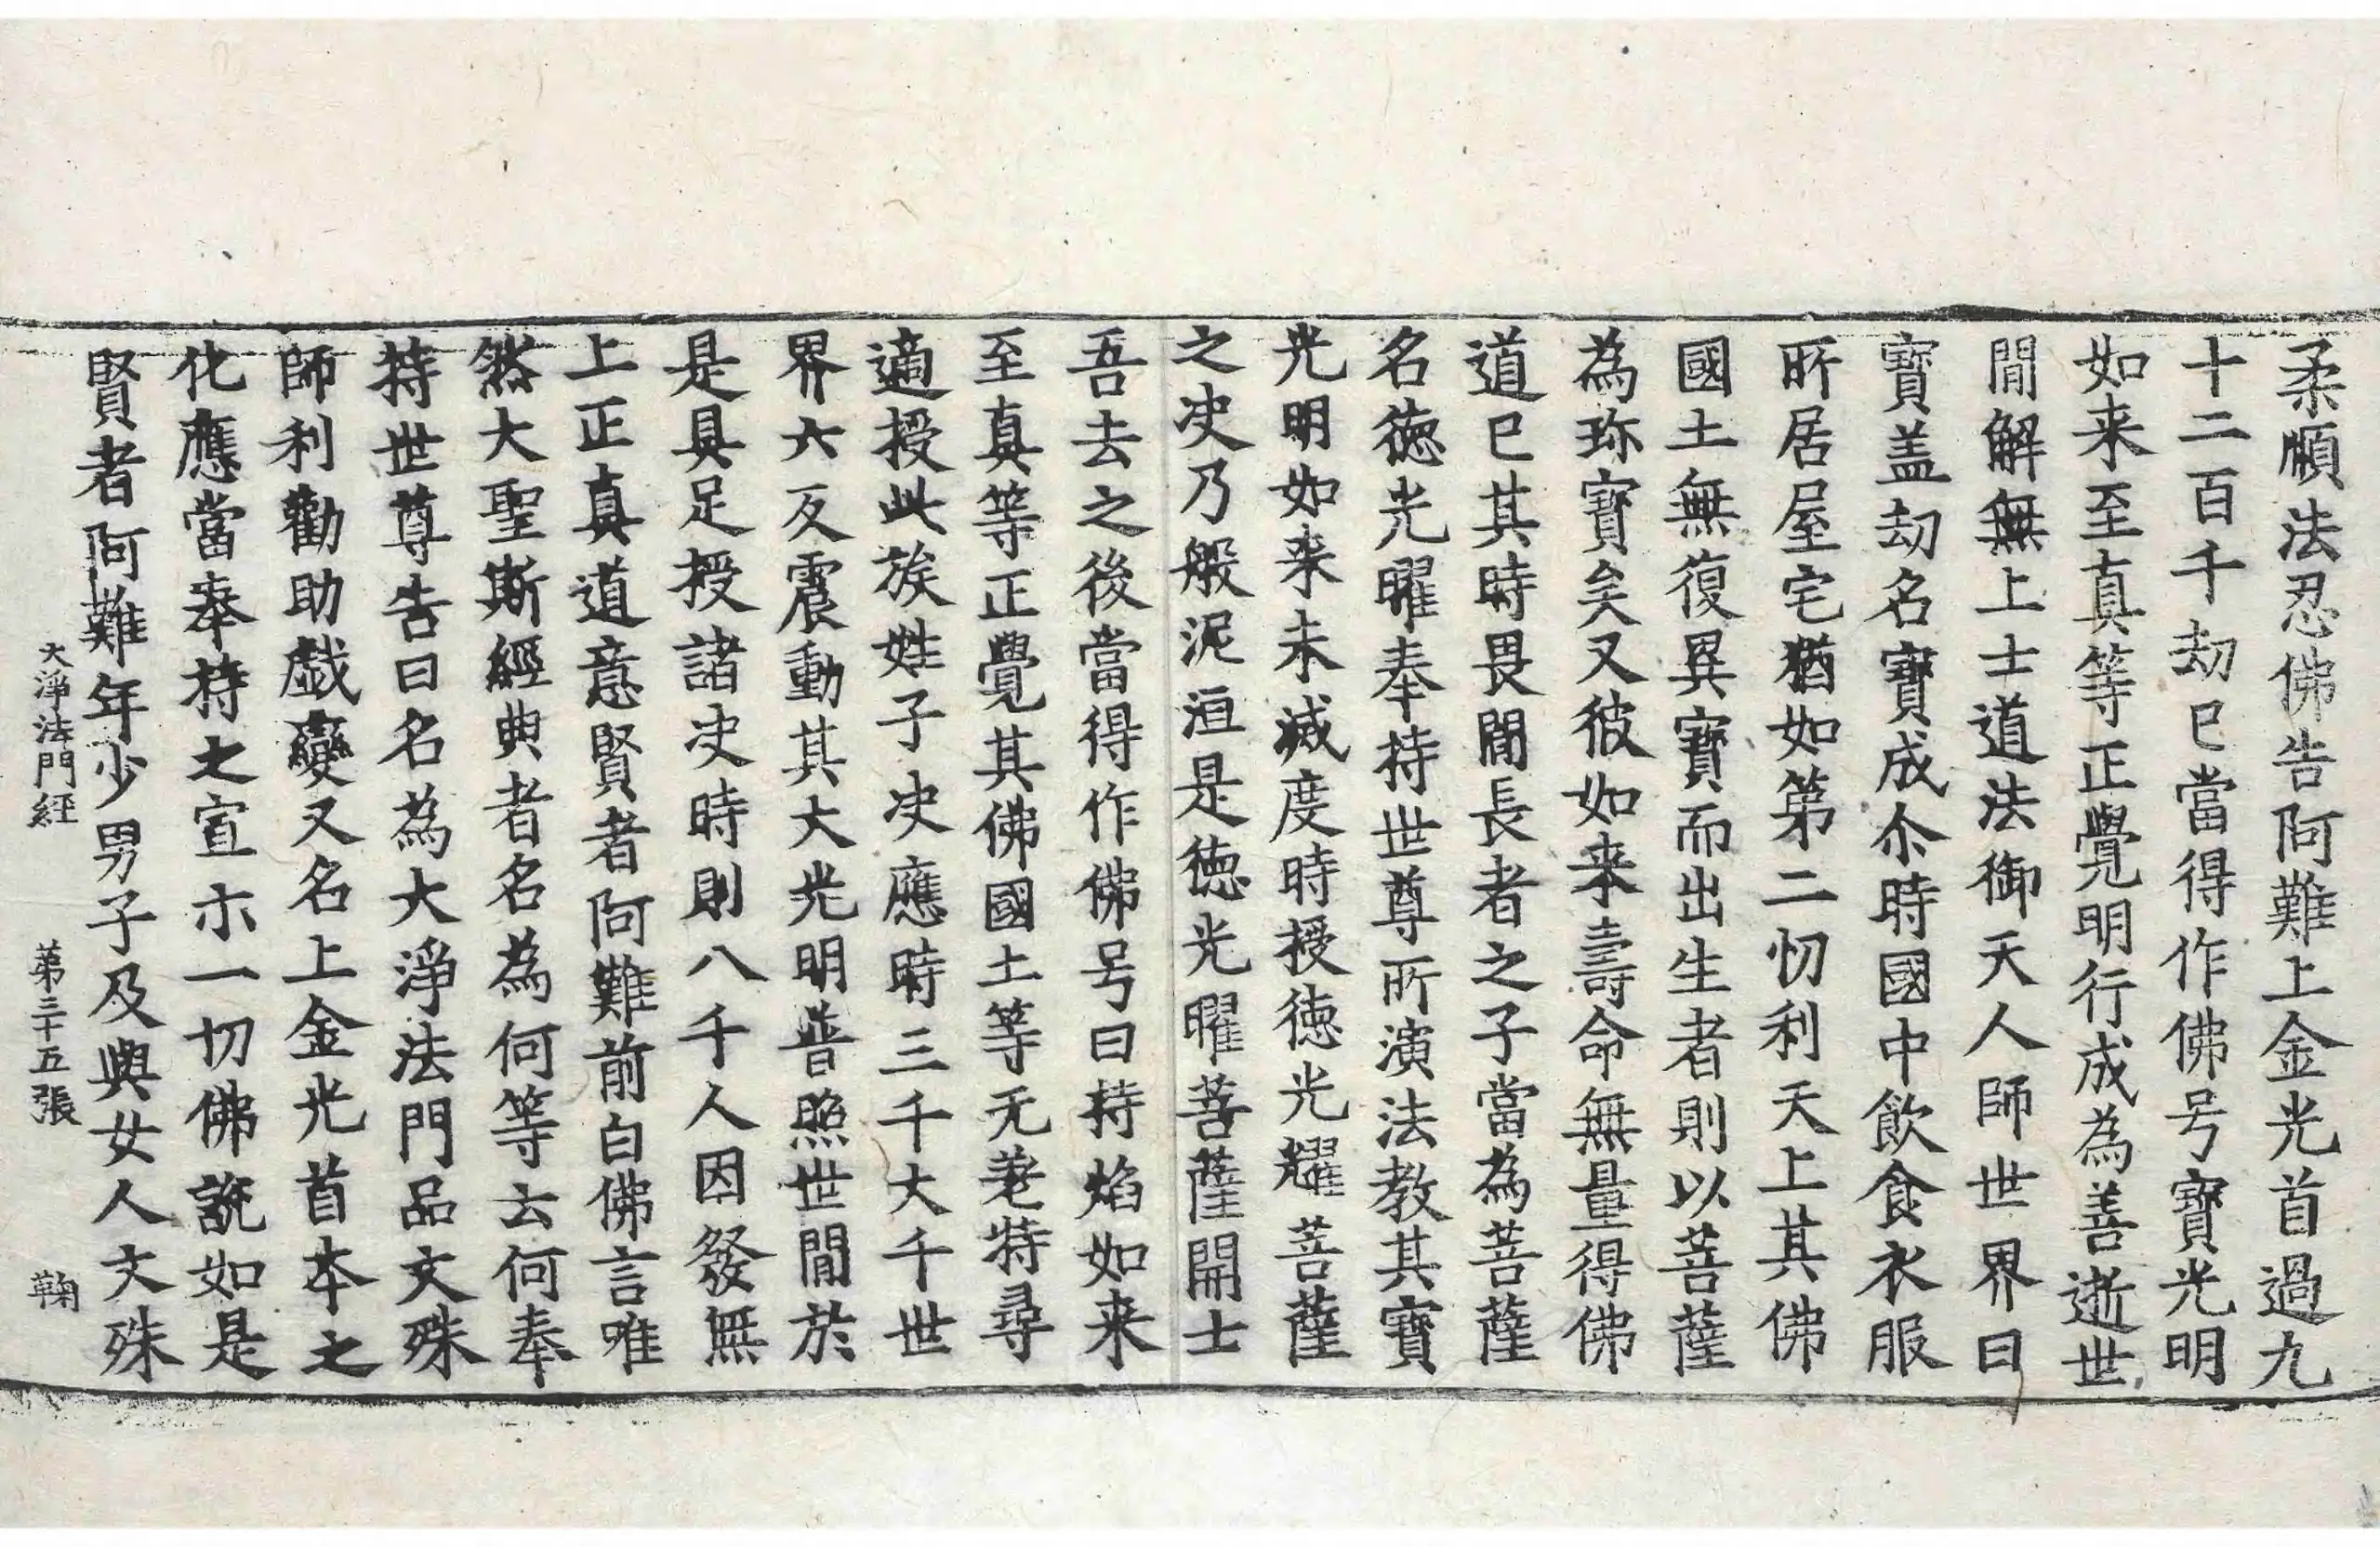 柔順法忍佛告阿難上金光首過九
十二百千劫已當得作佛号寶光明
如来至真等正覺明行成為善逝世
間解無上士道法御天人師世界曰
寶盖劫名寶成尒時國中飲食衣服
所居屋宅猶如第二忉利天上其佛
國土無復異寶而出生者則以菩薩
為珎寶矣又彼如来壽命無量得佛
道已其時畏間長者之子當為菩薩
名德光曜奉持世尊所演法教其寶
光明如来未滅度時授德光耀菩薩
之决乃般泥洹是德光曜菩薩開士
吾去之後當得作佛号曰持焰如来
至真等正覺其佛國土等无差特尋
適授此族姓子决應時三千大千世
界六反震動其大光明普照世間於
是具足授諸决時則八千人因發無
上正真道意賢者阿難前白佛言唯
然大聖斯經典者名為何等云何奉
持世尊告曰名為大淨法門品文殊
師利勸助戱變又名上金光首本之
化應當奉持之宣示一切佛說如是
賢者阿難年少男子及與女人文殊
大淨法門経　第三十五張　鞠